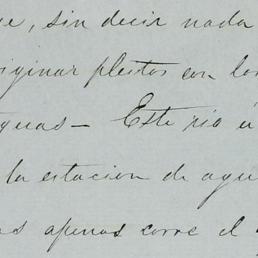 ue, sin decir nada
riginar pleitos con los
guas — Este rio ú
la estacion de agu
as apenas corre el